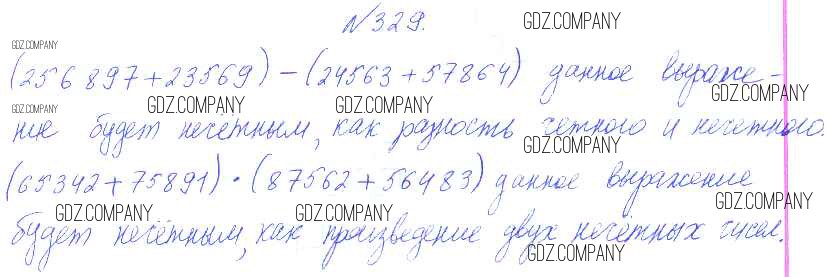 №329.
GDZ.COMPANY
GDZ.COMPANY
(256 897+23569)-(24563+57864) данное выраже-
GDZ.COMPANY
GDZ.COMPANY GDZ.COMPANY GDZ.COMPANY
ние будет нечётным, как разность четного и нечетного.
GDZ.COMPANY
(65342+75891)·(87562+56483) данное выражение
GDZ.COMPANY GDZ.COMPANY GDZ.COMPANY
будет нечётным, как произведение двух нечётных чисел.
GDZ.COMPANY